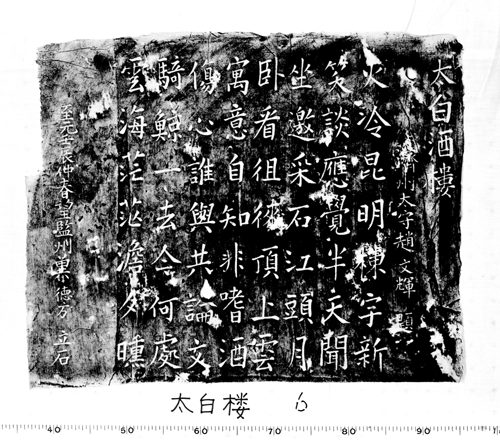 太白酒樓
州太守趙文輝題
火冷昆明棟宇新
笑談應覺半天聞
坐邀采石江頭月
卧看徂徠頂上雲
寓意自知非嗜酒
傷心誰與共論文
騎鯨一去今何處
雲海茫茫澹夕曛
至元壬辰仲春望監州德方立石
太白楼 6
40 50 60 70 80 90